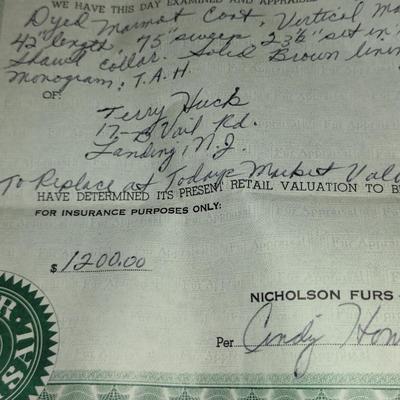 WE HAVE THIS DAY EXAMINED AND APPRAISED
Dyed Marmot Coat, Vertical
42" length, 75" sweep, 23½" set in
Shawl collar. Solid Brown lining
Monogram: T.A.H.
OF:
Terry Huck
17-B Vail Rd.
Landing, N.J.
To Replace at Todays Market Value
HAVE DETERMINED ITS PRESENT RETAIL VALUATION TO B
FOR INSURANCE PURPOSES ONLY:
$ 1200.00
NICHOLSON FURS
Per Cindy